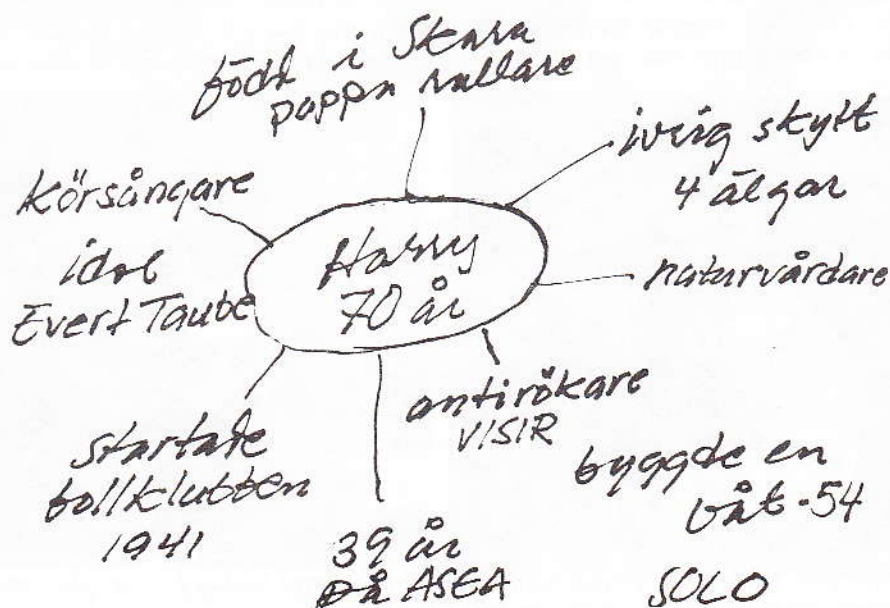 född i Skara
pappa rallare
ivrig skytt
4 älgar
körsångare
idol
Evert Taube
Harry
70 år
naturvårdare
antirökare
VISIR
startade
bollklubben
1941
39 år
på ASEA
byggde en
båt -54
SOLO